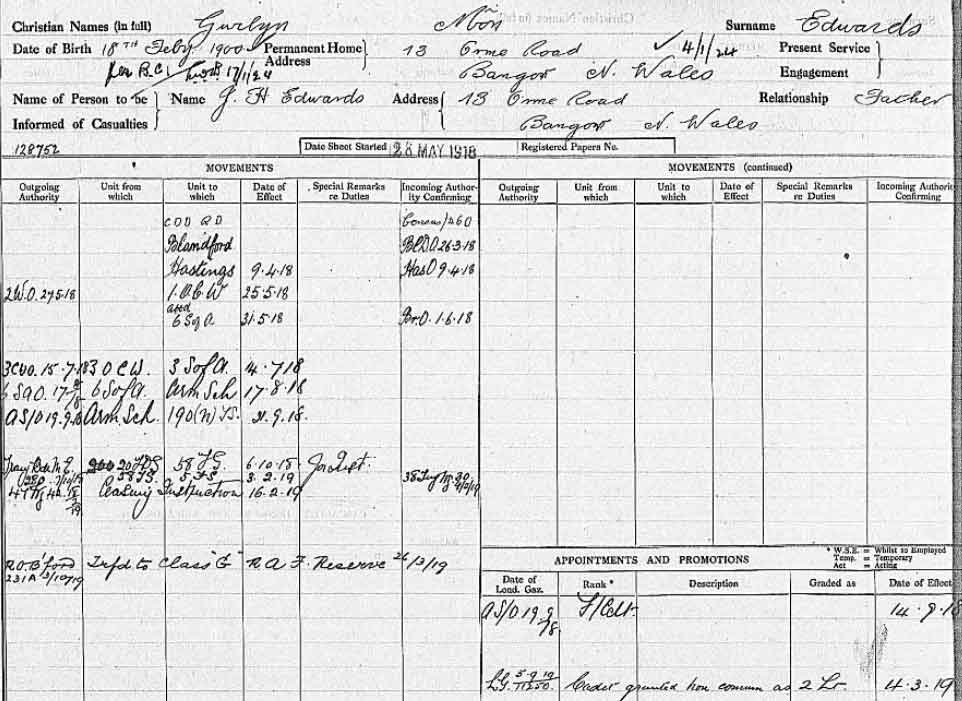 Christian Names (in full) Gwilyn Môn Surname Edwards
Date of Birth 18TH Feby 1900 Permanent Home Address 13 Orme Road 4/1/24 Present Service Engagement
per B.C. 17/1/24 Bangor N. Wales
Name of Person to be Informed of Casualties Name J. H Edwards Address 13 Orme Road Relationship Father
Bangor N. Wales
128752 Date Sheet Started 28 MAY 1918 Registered Papers No.
MOVEMENTS
Outgoing Authority Unit from which Unit to which Date of Effect Special Remarks re Duties Incoming Authority Confirming
COD RD Census/260
Blandford BLD.O 26-3-18
Hastings 9.4.18 Has O 9.4.18
2 W.O. 27.5.18 1.O.C.W 25-5-18
6 S of A. 31.5.18 Br.O. 1.6.18
3CWO. 15.7.18 3 O C W. 3 S of A. 14.7.18
6 SAO. 6 S of A. Arm Sch 17.8.18
AS/O 19.9.18 Arm Sch. 190(N) T.S. 21.9.18.
20 TDS 58 T.S. 6.10.18
58 T.S. 5 F S 3.2.19
Ceasing Instruction 16.2.19
R.O.B'ford Trfd to Class "G" R A F Reserve 26/3/19
231A
MOVEMENTS (continued)
Outgoing Authority Unit from which Unit to which Date of Effect Special Remarks re Duties Incoming Authority Confirming
* W.S.E. = Whilst so Employed
Temp. = Temporary
Act = Acting
APPOINTMENTS AND PROMOTIONS
Date of Lond. Gaz. Rank * Description Graded as Date of Effect
AS/O 19 9/18. F/Cdt. 14.9.18
L.G. 5-9-19 11250. Cadet granted hon commn as 2 Lt. 4.3.19